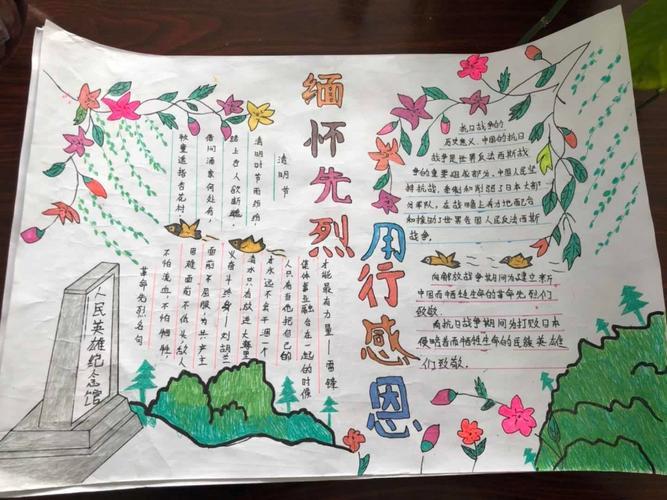 缅怀先烈
用行感恩
清明节
清明时节雨纷纷,
路上行人欲断魂。
借问酒家何处有,
牧童遥指杏花村。
革命先烈名句
不怕流血不怕牺牲
困难面前不低头敌人
面前不屈服为共产主
义奋斗终身——刘胡兰
水只有放进大海里
才永远不会干涸一个
人只有当他把自己和
集体事业融合在一起的时候
才能最有力量——雷锋
人民英雄纪念馆
抗日战争的
历史意义,中国的抗日
战争是世界反法西斯战
争的重要组成部分,中国人民坚
持抗战,牵制和削弱了日本大部
分军队,在战略上有力地配合
和援助了世界各国人民反法西斯
战争。
向解放战争期间为建立新
中国而牺牲生命的革命先烈们
致敬。
向抗日战争期间为打败日本
侵略者而牺牲生命的民族英雄
们致敬。